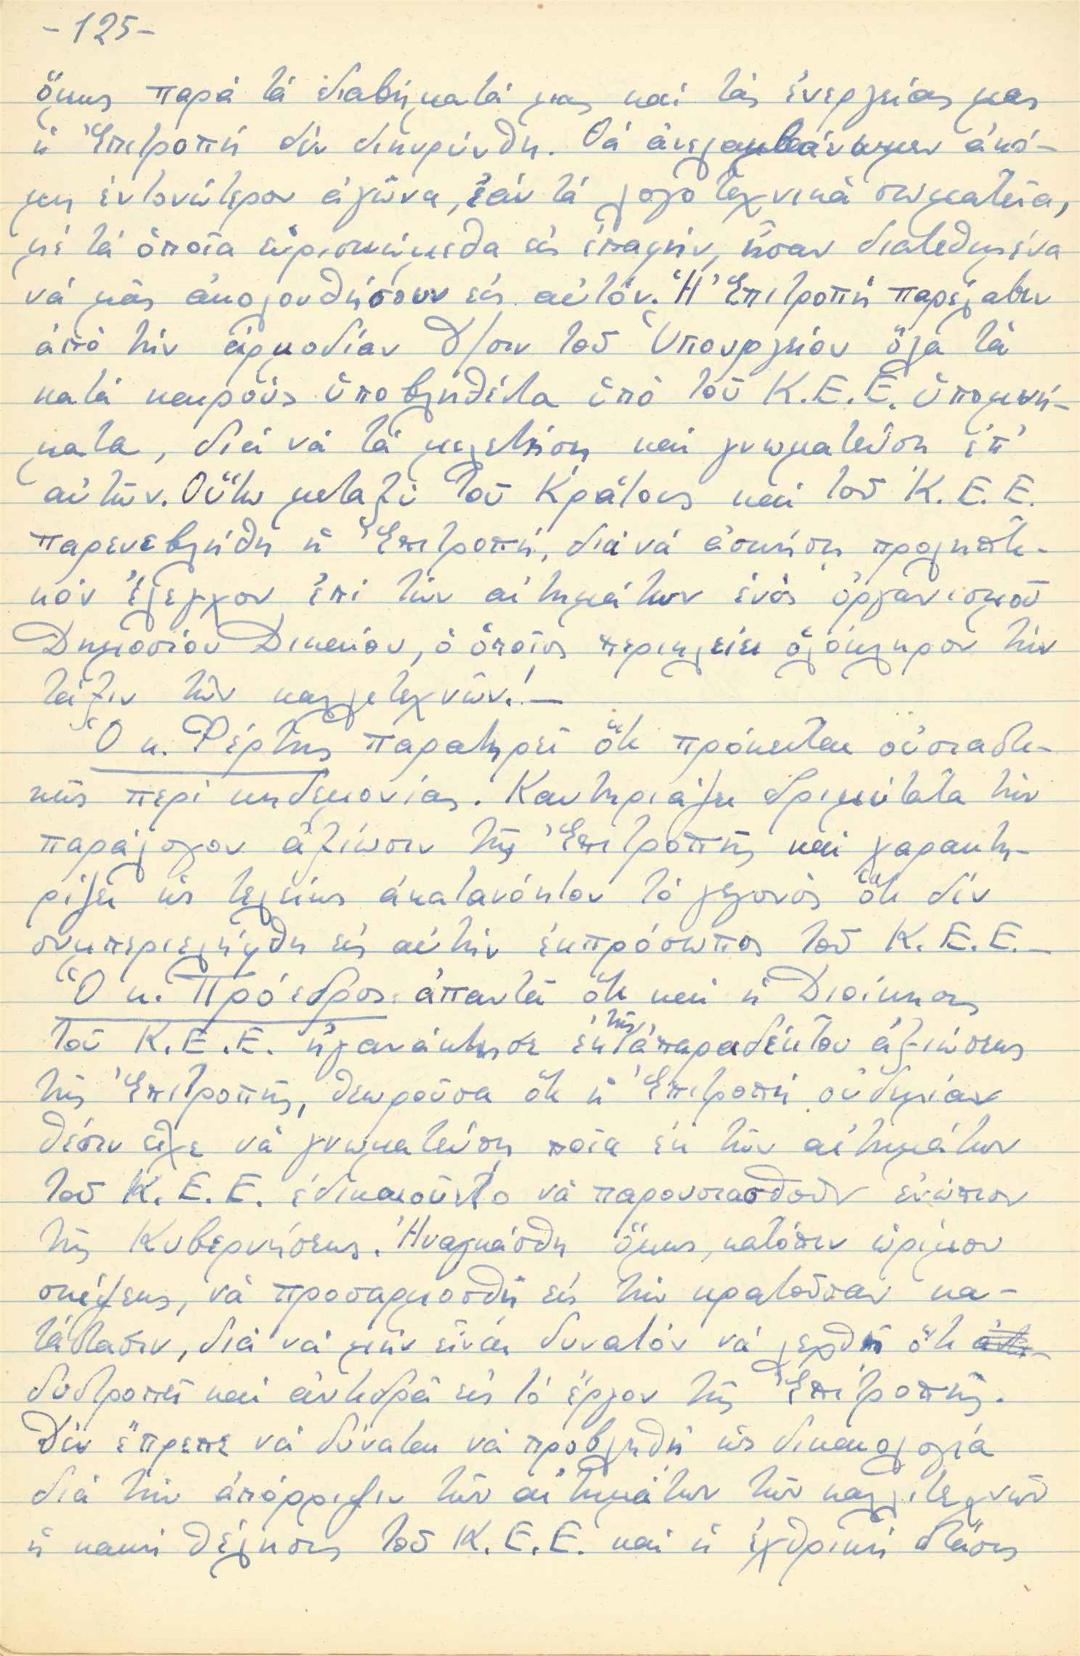 -125-
ὅμως παρά τά διαβήματά μας καί τάς ἐνεργείας μας
ἡ Ἐπιτροπή δέν διηυρύνθη. Θά ἀνελαμβάναμεν ἀκό-
μη ἐντονώτερον ἀγῶνα, ἐάν τά λογοτεχνικά σωματεῖα,
μέ τά ὁποῖα εὑρισκόμεθα εἰς ἐπαφήν, ἦσαν διατεθημένα
νά μᾶς ἀκολουθήσουν εἰς αὐτόν. Ἡ Ἐπιτροπή παρέλαβεν
ἀπό τήν ἁρμοδίαν Δ/σιν τοῦ Ὑπουργείου ὅλα τά
κατά καιρούς ὑποβληθέντα ὑπό τοῦ Κ.Ε.Ε. ὑπομνή-
ματα, διά νά τά μελετήσῃ καί γνωματεύσῃ ἐπ'
αὐτῶν. Οὕτω μεταξύ τοῦ Κράτους καί τοῦ Κ.Ε.Ε.
παρενεβλήθη ἡ Ἐπιτροπή, διά νά ἀσκήσῃ προληπτι-
κόν ἔλεγχον ἐπί τῶν αἰτημάτων ἑνός ὀργανισμοῦ
Δημοσίου Δικαίου, ὁ ὁποῖος περικλείει ὁλόκληρον τήν
τάξιν τῶν καλλιτεχνῶν!—
Ὁ κ. Φέρτης παρατηρεῖ ὅτι πρόκειται οὐσιαστι-
κῶς περί κηδεμονίας. Καυτηριάζει δριμύτατα τήν
παράλογον ἀξίωσιν τῆς Ἐπιτροπῆς καί χαρακτη-
ρίζει ὡς τελείως ἀκατανόητον τό γεγονός ὅτι δέν
συμπεριελήφθη εἰς αὐτήν ἐκπρόσωπος τοῦ Κ.Ε.Ε.—
Ὁ κ. Πρόεδρος ἀπαντᾶ ὅτι καί ἡ Διοίκησις
τοῦ Κ.Ε.Ε. ἠγανάκτησε ἐκ τῆς ἀπαραδέκτου ἀξιώσεως
τῆς Ἐπιτροπῆς, θεωροῦσα ὅτι ἡ Ἐπιτροπή οὐδεμίαν
θέσιν εἶχε νά γνωματεύσῃ ποῖα ἐκ τῶν αἰτημάτων
τοῦ Κ.Ε.Ε. ἐδικαιοῦντο νά παρουσιασθοῦν ἐνώπιον
τῆς Κυβερνήσεως. Ἠναγκάσθη ὅμως, κατόπιν ὡρίμου
σκέψεως, νά προσαρμοσθῇ εἰς τήν κρατοῦσαν κα-
τάστασιν, διά νά μήν εἶναι δυνατόν νά λεχθῇ ὅτι
δυστροπεῖ καί ἀντιδρᾶ εἰς τό ἔργον τῆς Ἐπιτροπῆς.
Δέν ἔπρεπε νά δύναται νά προβληθῇ ὡς δικαιολογία
διά τήν ἀπόρριψιν τῶν αἰτημάτων τῶν καλλιτεχνῶν
ἡ κακή θέλησις τοῦ Κ.Ε.Ε. καί ἡ ἐχθρική στάσις